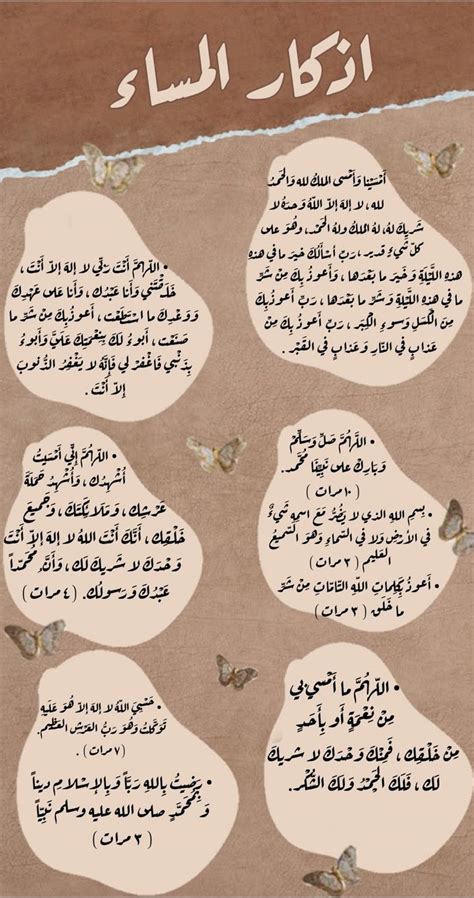 اذكار المساء
أَمْسَيْنا وَأَمْسى الملكُ لله وَالحَمدُ
لله ، لا إلهَ إلاّ اللّهُ وَحدَهُ لا
شَريكَ لهُ، لهُ الملكُ ولهُ الحَمْد، وهُوَ على
كلّ شَيءٍ قدير ، رَبِّ أسْأَلُكَ خَيرَ ما في هذهِ
اللَّيْلَةِ وَخَيرَ ما بَعْدَها ، وَأَعوذُ بِكَ مِنْ شَرِّ
ما في هذهِ اللَّيْلةِ وَشَرِّ ما بَعْدَها ، رَبِّ أَعوذُبِكَ
مِنَ الْكَسَلِ وَسوءِ الْكِبَر ، رَبِّ أَعوذُ بِكَ مِنْ
عَذابٍ في النّارِ وَعَذابٍ في القَبْر .
• اللّهمَّ أَنْتَ رَبِّي لا إلهَ إلاّ أَنْتَ ،
خَلَقْتَني وَأَنا عَبْدُك ، وَأَنا على عَهْدِكَ
وَوَعْدِكَ ما اسْتَطَعْت ، أَعوذُبِكَ مِنْ شَرِّ ما
صَنَعْت ، أَبوءُ لَكَ بِنِعْمَتِكَ عَلَيَّ وَأَبوءُ
بِذَنْبي فَاغْفِرْ لي فَإِنَّهُ لا يَغْفِرُ الذُّنوبَ
إِلاّ أَنْتَ .
• اللَّهُمَّ صَلِّ وَسَلِّمْ
وَبَارِكْ على نَبِيِّنَا مُحمَّد.
( ١٠ مرات )
• بِسمِ اللهِ الذي لا يَضُرُّ مَعَ اسمِهِ شَيءٌ
في الأرْضِ وَلا في السّماءِ وَهوَ السّميعُ
العَليم ( ٣ مرات )
• أَعوذُ بِكَلِماتِ اللّهِ التّامّاتِ مِنْ شَرِّ
ما خَلَق ( ٣ مرات )
• اللّهُمَّ إِنِّي أَمسَيتُ
أُشْهِدُك ، وَأُشْهِدُ حَمَلَةَ
عَرْشِك ، وَمَلَائِكَتَك ، وَجَميعَ
خَلْقِك ، أَنَّكَ أَنْتَ اللهُ لا إلهَ إلاّ أَنْتَ
وَحْدَكَ لا شَريكَ لَك ، وَأَنَّ مُحَمّداً
عَبْدُكَ وَرَسولُك. ( ٤ مرات )
• اللّهُمَّ ما أَمْسى بي
مِنْ نِعْمَةٍ أَو بِأَحَدٍ
مِنْ خَلْقِك ، فَمِنْكَ وَحْدَكَ لا شريكَ
لك ، فَلَكَ الْحَمْدُ وَلَكَ الشُّكْر .
• حَسْبِيَ اللّهُ لا إلهَ إلاّ هُوَ عَلَيهِ
تَوَكَّلتُ وَهُوَ رَبُّ العَرْشِ العَظيم.
( ٧ مرات ) .
• رَضيتُ بِاللهِ رَبَّاً وَبِالإسْلامِ ديناً
وَبِمُحَمَّدٍ صلى الله عليه وسلم نَبِيّاً
( ٣ مرات )